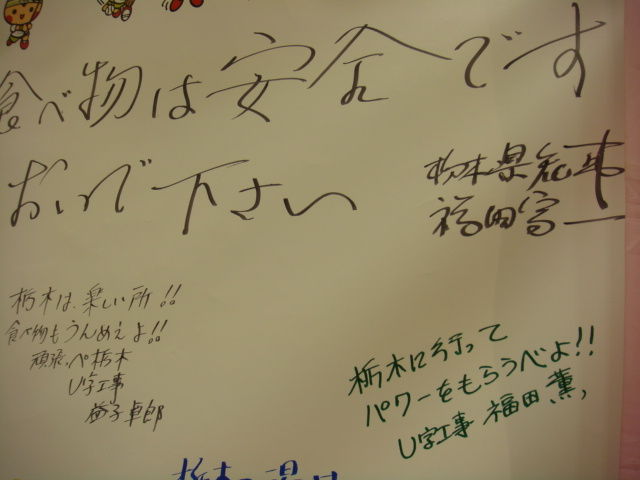 食べ物は安全です
おいで下さい
栃木県知事
福田富一
栃木は、楽しい所!!
食べ物もうんめぇよ!!
頑張っぺ栃木
U字工事
益子卓郎
栃木に行って
パワーをもらうべよ!!
U字工事 福田 薫